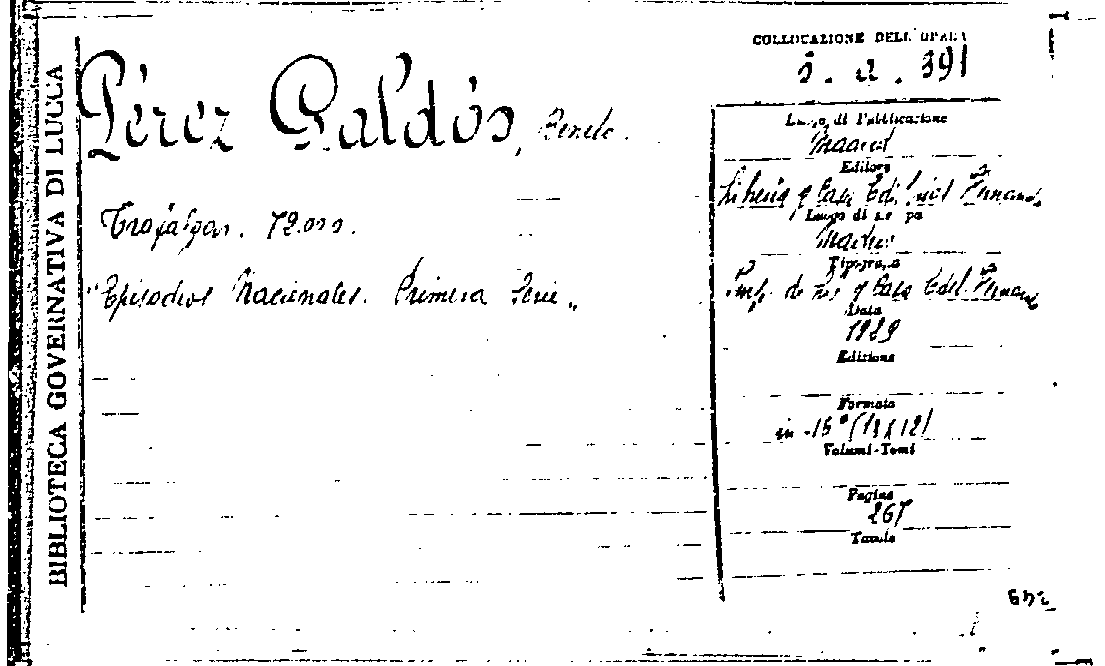 BIBLIOTECA GOVERNATIVA DI LUCCA
COLLOCAZIONE DELL'OPERA
391
Pérez Galdós, Benito.
Trafalgar. 72.000.
"Episodios Nacionales. Primera Serie„
Luogo di Pubblicazione
Madrid
Editore
Librería y Casa Editorial Hernando
Luogo di stampa
Madrid
Tipografo
Imp. de y Casa Edit. Hernando
Data
1929
Edizione
Formato
in -16°
Volumi-Tomi
Pagine
267
Tavole